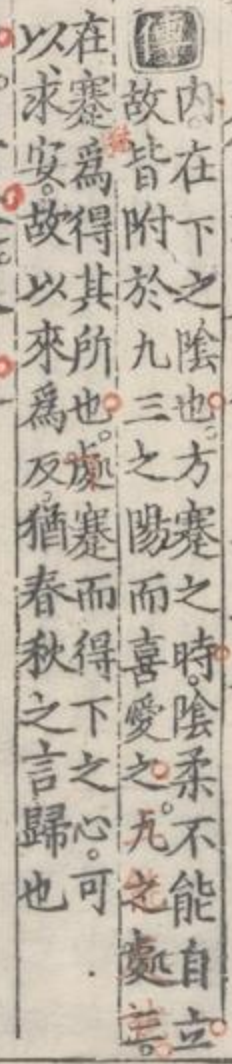 傳
内在下之陰也方蹇之時陰柔不能自立
故皆附於九三之陽而喜愛之九之處三
在蹇爲得其所也處蹇而得下之心可
以求安故以來爲反猶春秋之言歸也